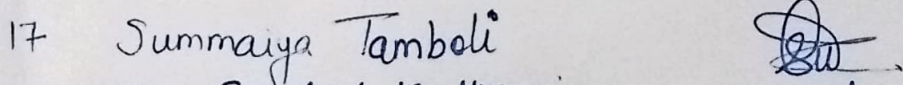 17 Summaiya Tamboli